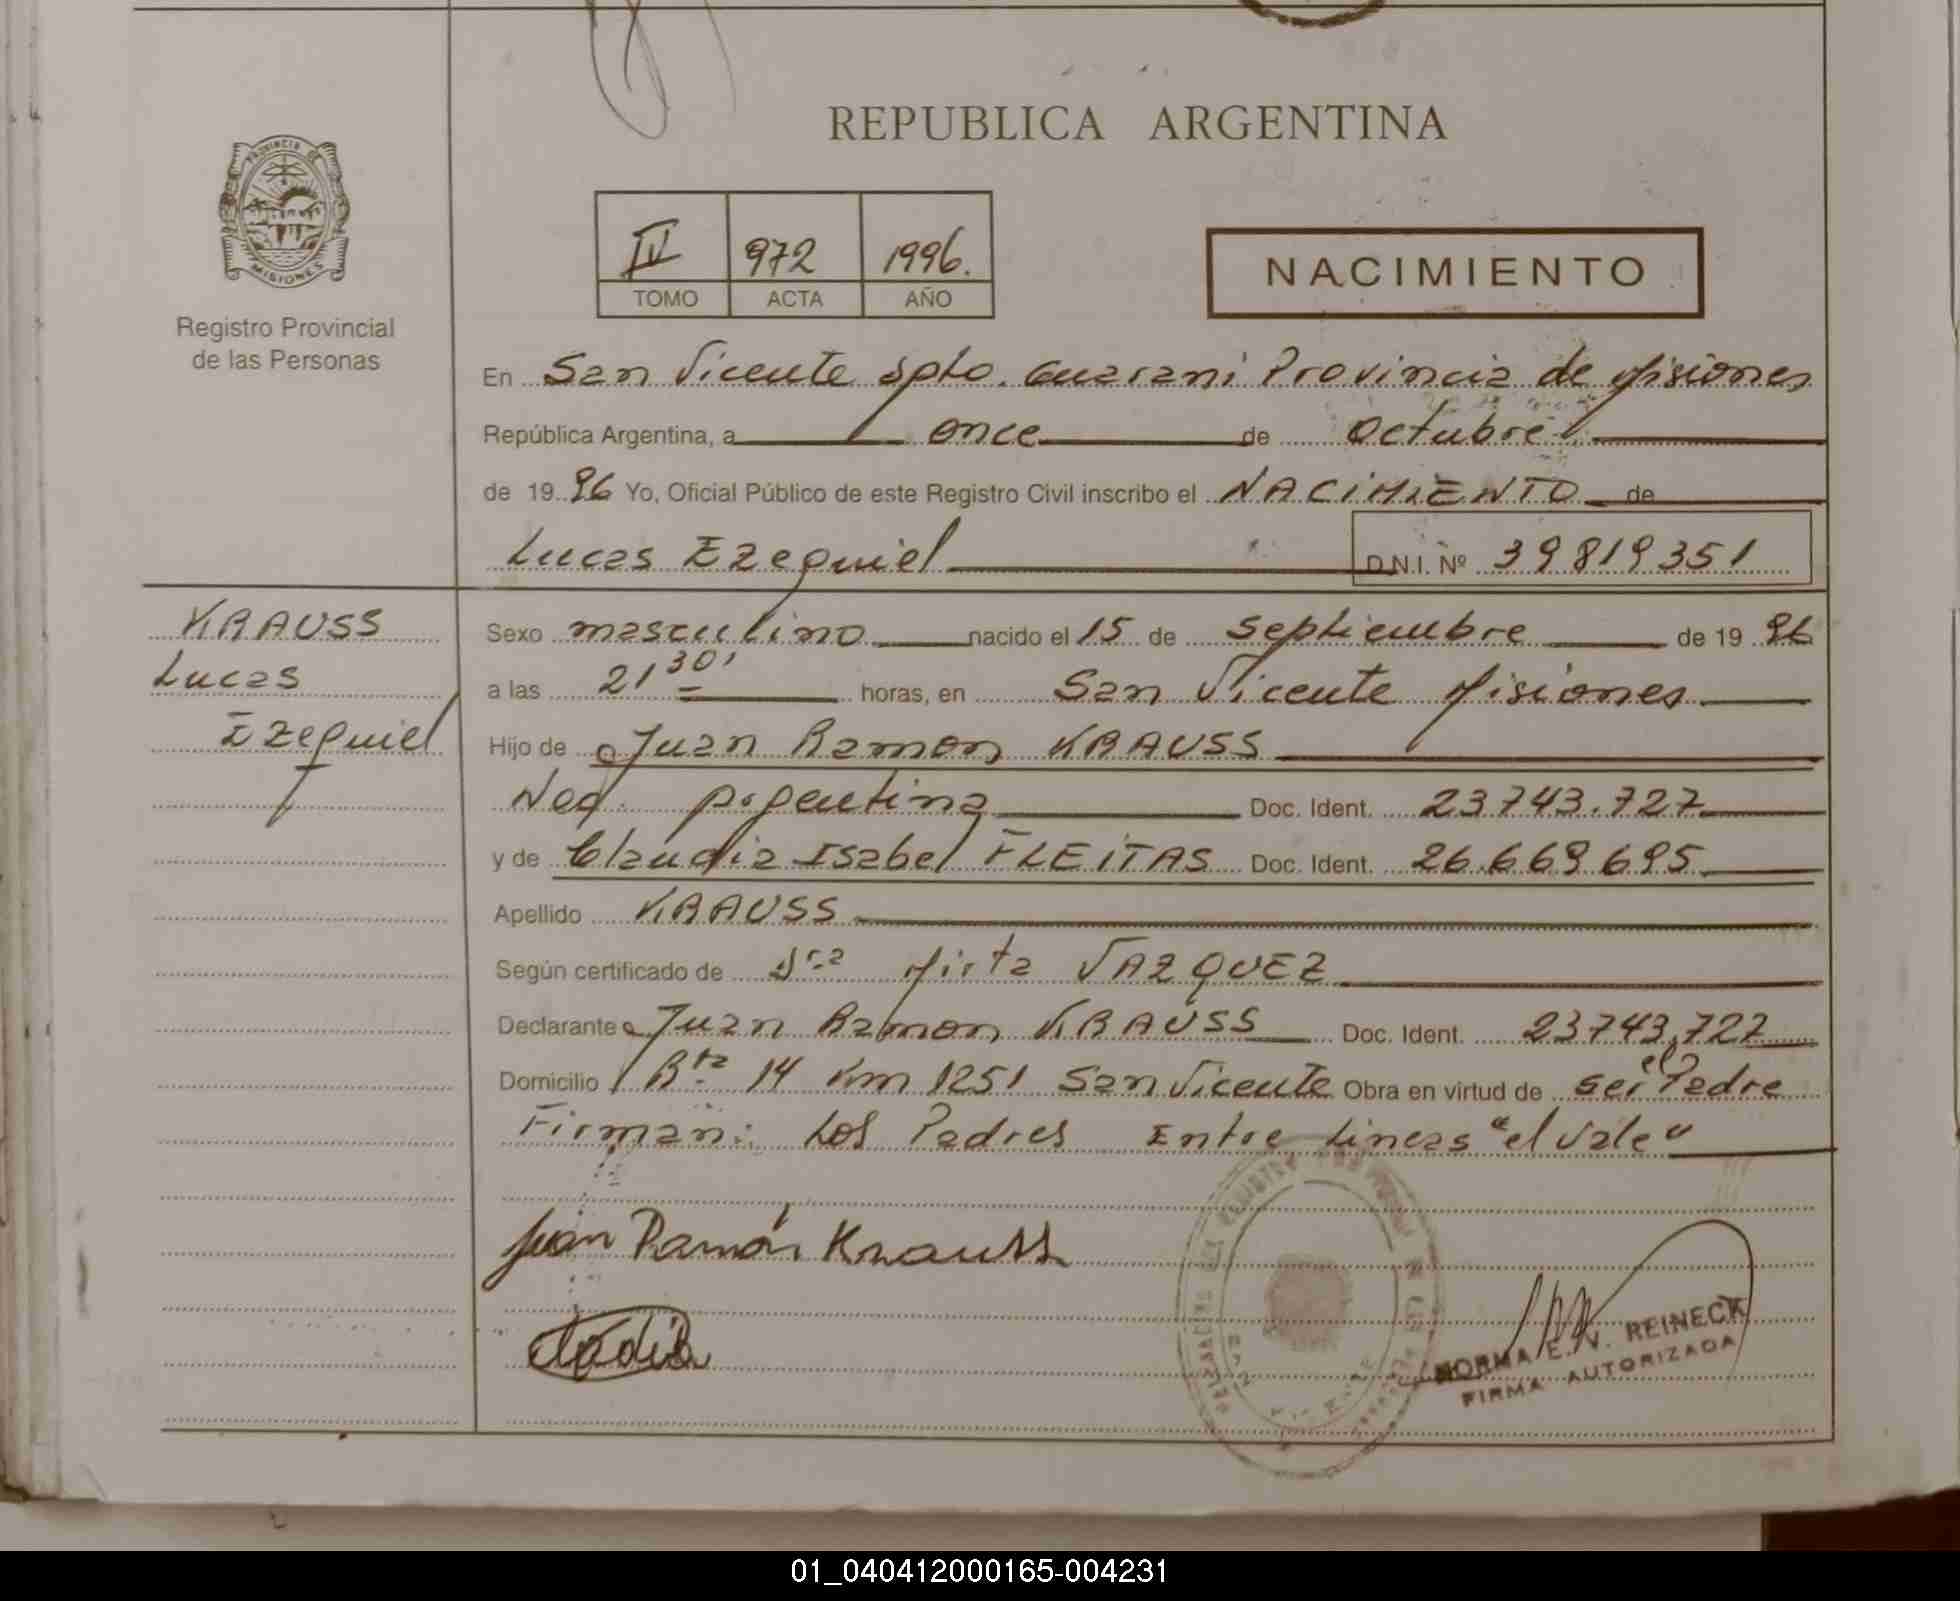 REPUBLICA ARGENTINA
PROVINCIA DE
MISIONES
Registro Provincial
de las Personas
IV 972 1996.
TOMO ACTA AÑO
NACIMIENTO
En San Vicente Dpto. Guarani Provincia de Misiones
República Argentina, a once de Octubre
de 19 96 Yo, Oficial Público de este Registro Civil inscribo el NACIMIENTO de
Lucas Ezequiel D.N.I. Nº 39819351
KRAUSS
Lucas
Ezequiel
Sexo masculino nacido el 15 de Septiembre de 19 96
a las 21 30' horas, en San Vicente Misiones
Hijo de Juan Ramon KRAUSS
Nac. Argentina Doc. Ident. 23.743.727
y de Claudia Isabel FLEITAS Doc. Ident. 26.669.695
Apellido KRAUSS
Según certificado de Dra Mirta VAZQUEZ
Declarante Juan Ramon KRAUSS Doc. Ident. 23743.727
Domicilio Rta 14 Km 1251 San Vicente Obra en virtud de ser el Padre
Firman: Los Padres Entre Lineas "el Vale"
Juan Ramón Krauss
NORMA E. N. REINECK
FIRMA AUTORIZADA
01_040412000165-004231